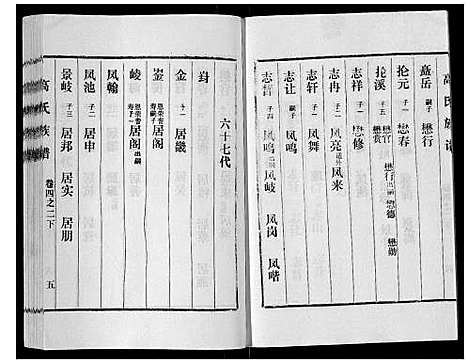 高氏族谱
岳 嗣子 懋行
抡元 子二 懋春 懋行 出嗣 懋德 懋勋
抡溪 子五 懋官 懋赏
志祥 子一 懋修
志冉 子二 凤亮 适外 凤来
志轩 子一 凤舞
志让 嗣子 凤鸣
志哲 子四 凤鸣 出嗣 凤岐 凤岗 凤喈
六十七代
封
金 子一 居畿
崟 恩荣耆寿嗣子 居阁
崚 恩荣耆寿子一 居阁 出嗣
凤翰
凤池 子一 居申
景岐 子三 居邦 居实 居朋
高氏族谱
卷四之二下
五